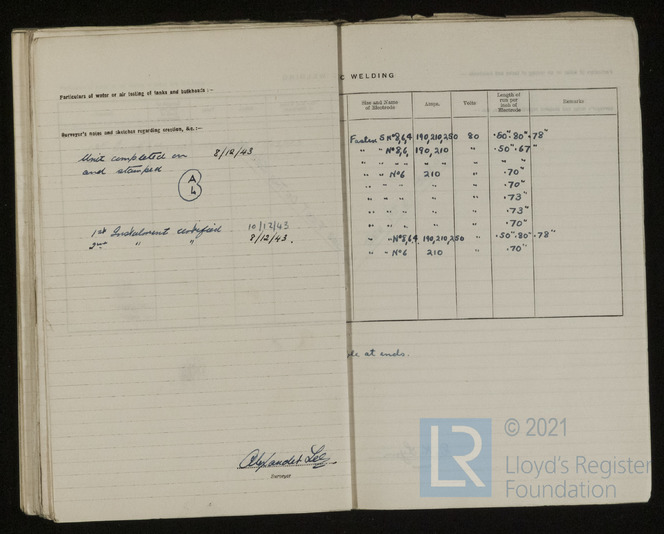 Particulars of water or air testing of tanks and bulkheads :—
Surveyor's notes and sketches regarding erection, &c. :—
Unit completed on 8/12/43
and stamped
A
L
1st Instalment certified 10/12/43
2nd " " 8/12/43.
Alexander Lee
Surveyor
C WELDING
Size and Name of Electrode Amps. Volts Length of run per inch of Electrode Remarks
5 Nº 8,6,4 190,210,250 80 .50".80".78"
" " Nº 8,6, 190,210 " .50".67"
" " " " " " " "
" " Nº 6 210 " .70"
" " " " " " .70"
" " " " " " .73"
" " " " " " .73"
" " " " " " .70"
" " Nº 8,6,4 190,210,250 " .50".80".78"
" " Nº 6 210 " .70"
at ends.
LR
© 2021
Lloyd's Register
Foundation